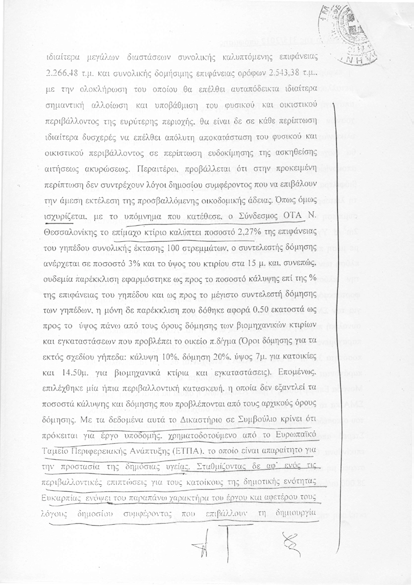 ιδιαίτερα μεγάλων διαστάσεων συνολικής καλυπτόμενης επιφάνειας
2.266.48 τ.μ. και συνολικής δομήσιμης επιφάνειας ορόφων 2.543,38 τ.μ.,
με την ολοκλήρωση του οποίου θα επέλθει αυταπόδεικτα ιδιαίτερα
σημαντική αλλοίωση και υποβάθμιση του φυσικού και οικιστικού
περιβάλλοντος της ευρύτερης περιοχής, θα είναι δε σε κάθε περίπτωση
ιδιαίτερα δυσχερές να επέλθει απόλυτη αποκατάσταση του φυσικού και
οικιστικού περιβάλλοντος σε περίπτωση ευδοκίμησης της ασκηθείσης
αιτήσεως ακυρώσεως. Περαιτέρω, προβάλλεται ότι στην προκειμένη
περίπτωση δεν συντρέχουν λόγοι δημοσίου συμφέροντος που να επιβάλουν
την άμεση εκτέλεση της προσβαλλόμενης οικοδομικής άδειας. Όπως όμως
ισχυρίζεται, με το υπόμνημα που κατέθεσε, ο Σύνδεσμος ΟΤΑ Ν.
Θεσσαλονίκης το επίμαχο κτίριο καλύπτει ποσοστό 2,27% της επιφάνειας
του γηπέδου συνολικής έκτασης 100 στρεμμάτων, ο συντελεστής δόμησης
ανέρχεται σε ποσοστό 3% και το ύψος του κτιρίου στα 15 μ. και, συνεπώς,
ουδεμία παρέκκλιση εφαρμόστηκε ως προς το ποσοστό κάλυψης επί της %
της επιφάνειας του γηπέδου και ως προς το μέγιστο συντελεστή δόμησης
των γηπέδων, η μόνη δε παρέκκλιση που δόθηκε αφορά 0,50 εκατοστά ως
προς το ύψος πάνω από τους όρους δόμησης των βιομηχανικών κτιρίων
και εγκαταστάσεων που προβλέπει το οικείο π.δ/γμα (Όροι δόμησης για τα
εκτός σχεδίου γήπεδα: κάλυψη 10%, δόμηση 20%, ύψος 7μ. για κατοικίες
και 14,50μ. για βιομηχανικά κτίρια και εγκαταστάσεις). Επομένως,
επιλέχθηκε μία ήπια περιβαλλοντική κατασκευή, η οποία δεν εξαντλεί τα
ποσοστά κάλυψης και δόμησης που προβλέπονται από τους αρχικούς όρους
δόμησης. Με τα δεδομένα αυτά το Δικαστήριο σε Συμβούλιο κρίνει ότι
πρόκειται για έργο υποδομής, χρηματοδοτούμενο από το Ευρωπαϊκό
Ταμείο Περιφερειακής Ανάπτυξης (ΕΤΠΑ), το οποίο είναι απαραίτητο για
την προστασία της δημόσιας υγείας. Σταθμίζοντας δε αφ' ενός τις
περιβαλλοντικές επιπτώσεις για τους κατοίκους της δημοτικής ενότητας
Ευκαρπίας ενόψει του παραπάνω χαρακτήρα του έργου και αφετέρου τους
λόγους δημοσίου συμφέροντος που επιβάλλουν τη δημιουργία